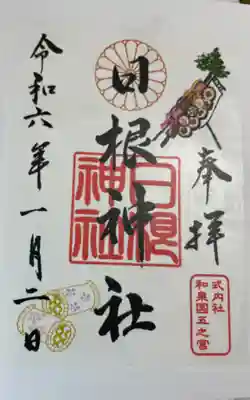 奉拝
日根神社
日根神社
令和六年一月二日
式内社
和泉国五之宮